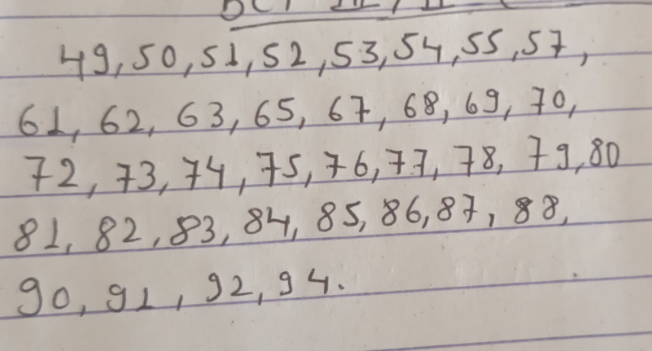 49, 50, 51, 52, 53, 54, 55, 57,
61, 62, 63, 65, 67, 68, 69, 70,
72, 73, 74, 75, 76, 77, 78, 79, 80
81, 82, 83, 84, 85, 86, 87, 88,
90, 91, 92, 94.